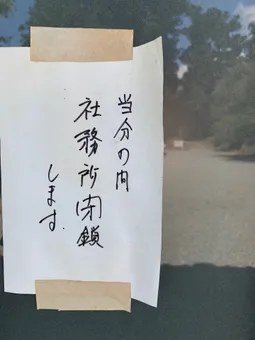 当分の間
社務所閉鎖
します.